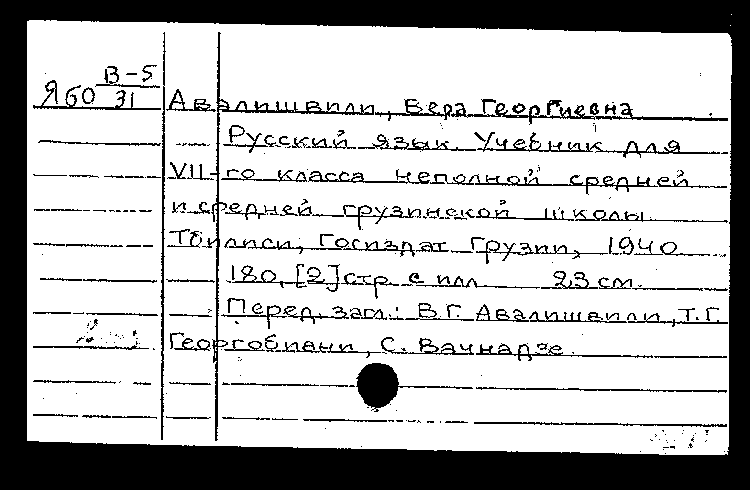 В-5
Я60 31
Авалишвили, Вера Георгиевна
Русский язык. Учебник для
VII-го класса неполной средней
и средней грузинской школы.
Тбилиси, Госиздат Грузии, 1940
180, [2] стр. с илл. 23 см.
Перед. загл.: В.Г. Авалишвили, Т.Г.
Георгобиани, С. Вачнадзе.